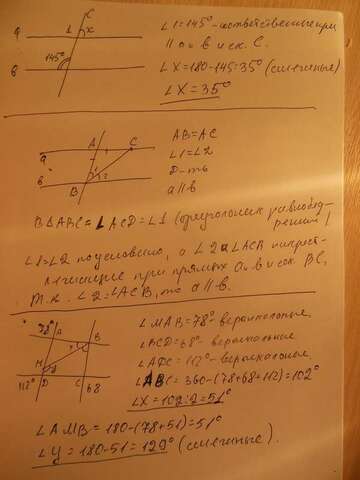 C
a 1 x
∠1=145° - соответственные при
|| a и в и ск. C.
145°
в
∠X=180-145=35° (смежные)
∠X=35°
A C
a
AB=AC
∠1=∠2
D-ть
a||в
в 1 2
B
В ΔABC = ∠ACD=∠1 (треугольник равнобед-
ренный)
∠1=∠2 по условию, а ∠2 и ∠ACB накрест-
лежащие при прямых a и в и сек. BC,
т.к. ∠2=∠ACB, то a||в.
78° A
B
M
112° D C 68
∠MAB=78° - вертикальные,
∠BCD=68° - вертикальные
∠ADC=112° - вертикальные.
∠ABC=360-(78+68+112)=102°
∠X=102:2=51°
∠AMB=180-(78+51)=51°
∠У=180-51=129° (смежные).